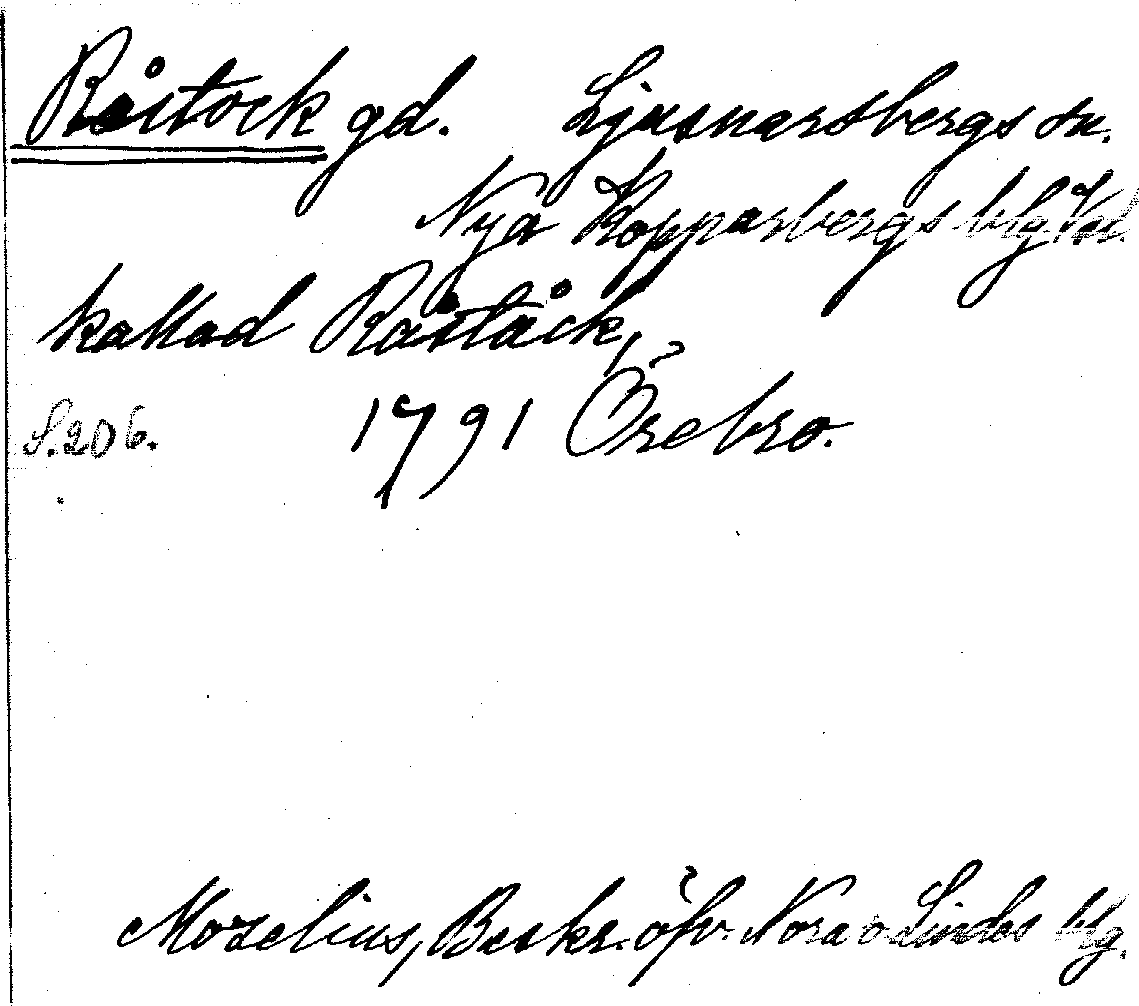 Råstock gd. Ljusnarsbergs sn.
Nya Kopparbergs blg
kallad Råståck,
S. 206. 1791 Örebro.
Mozelius, Beskr. öfv. Nora o Lindes blg.